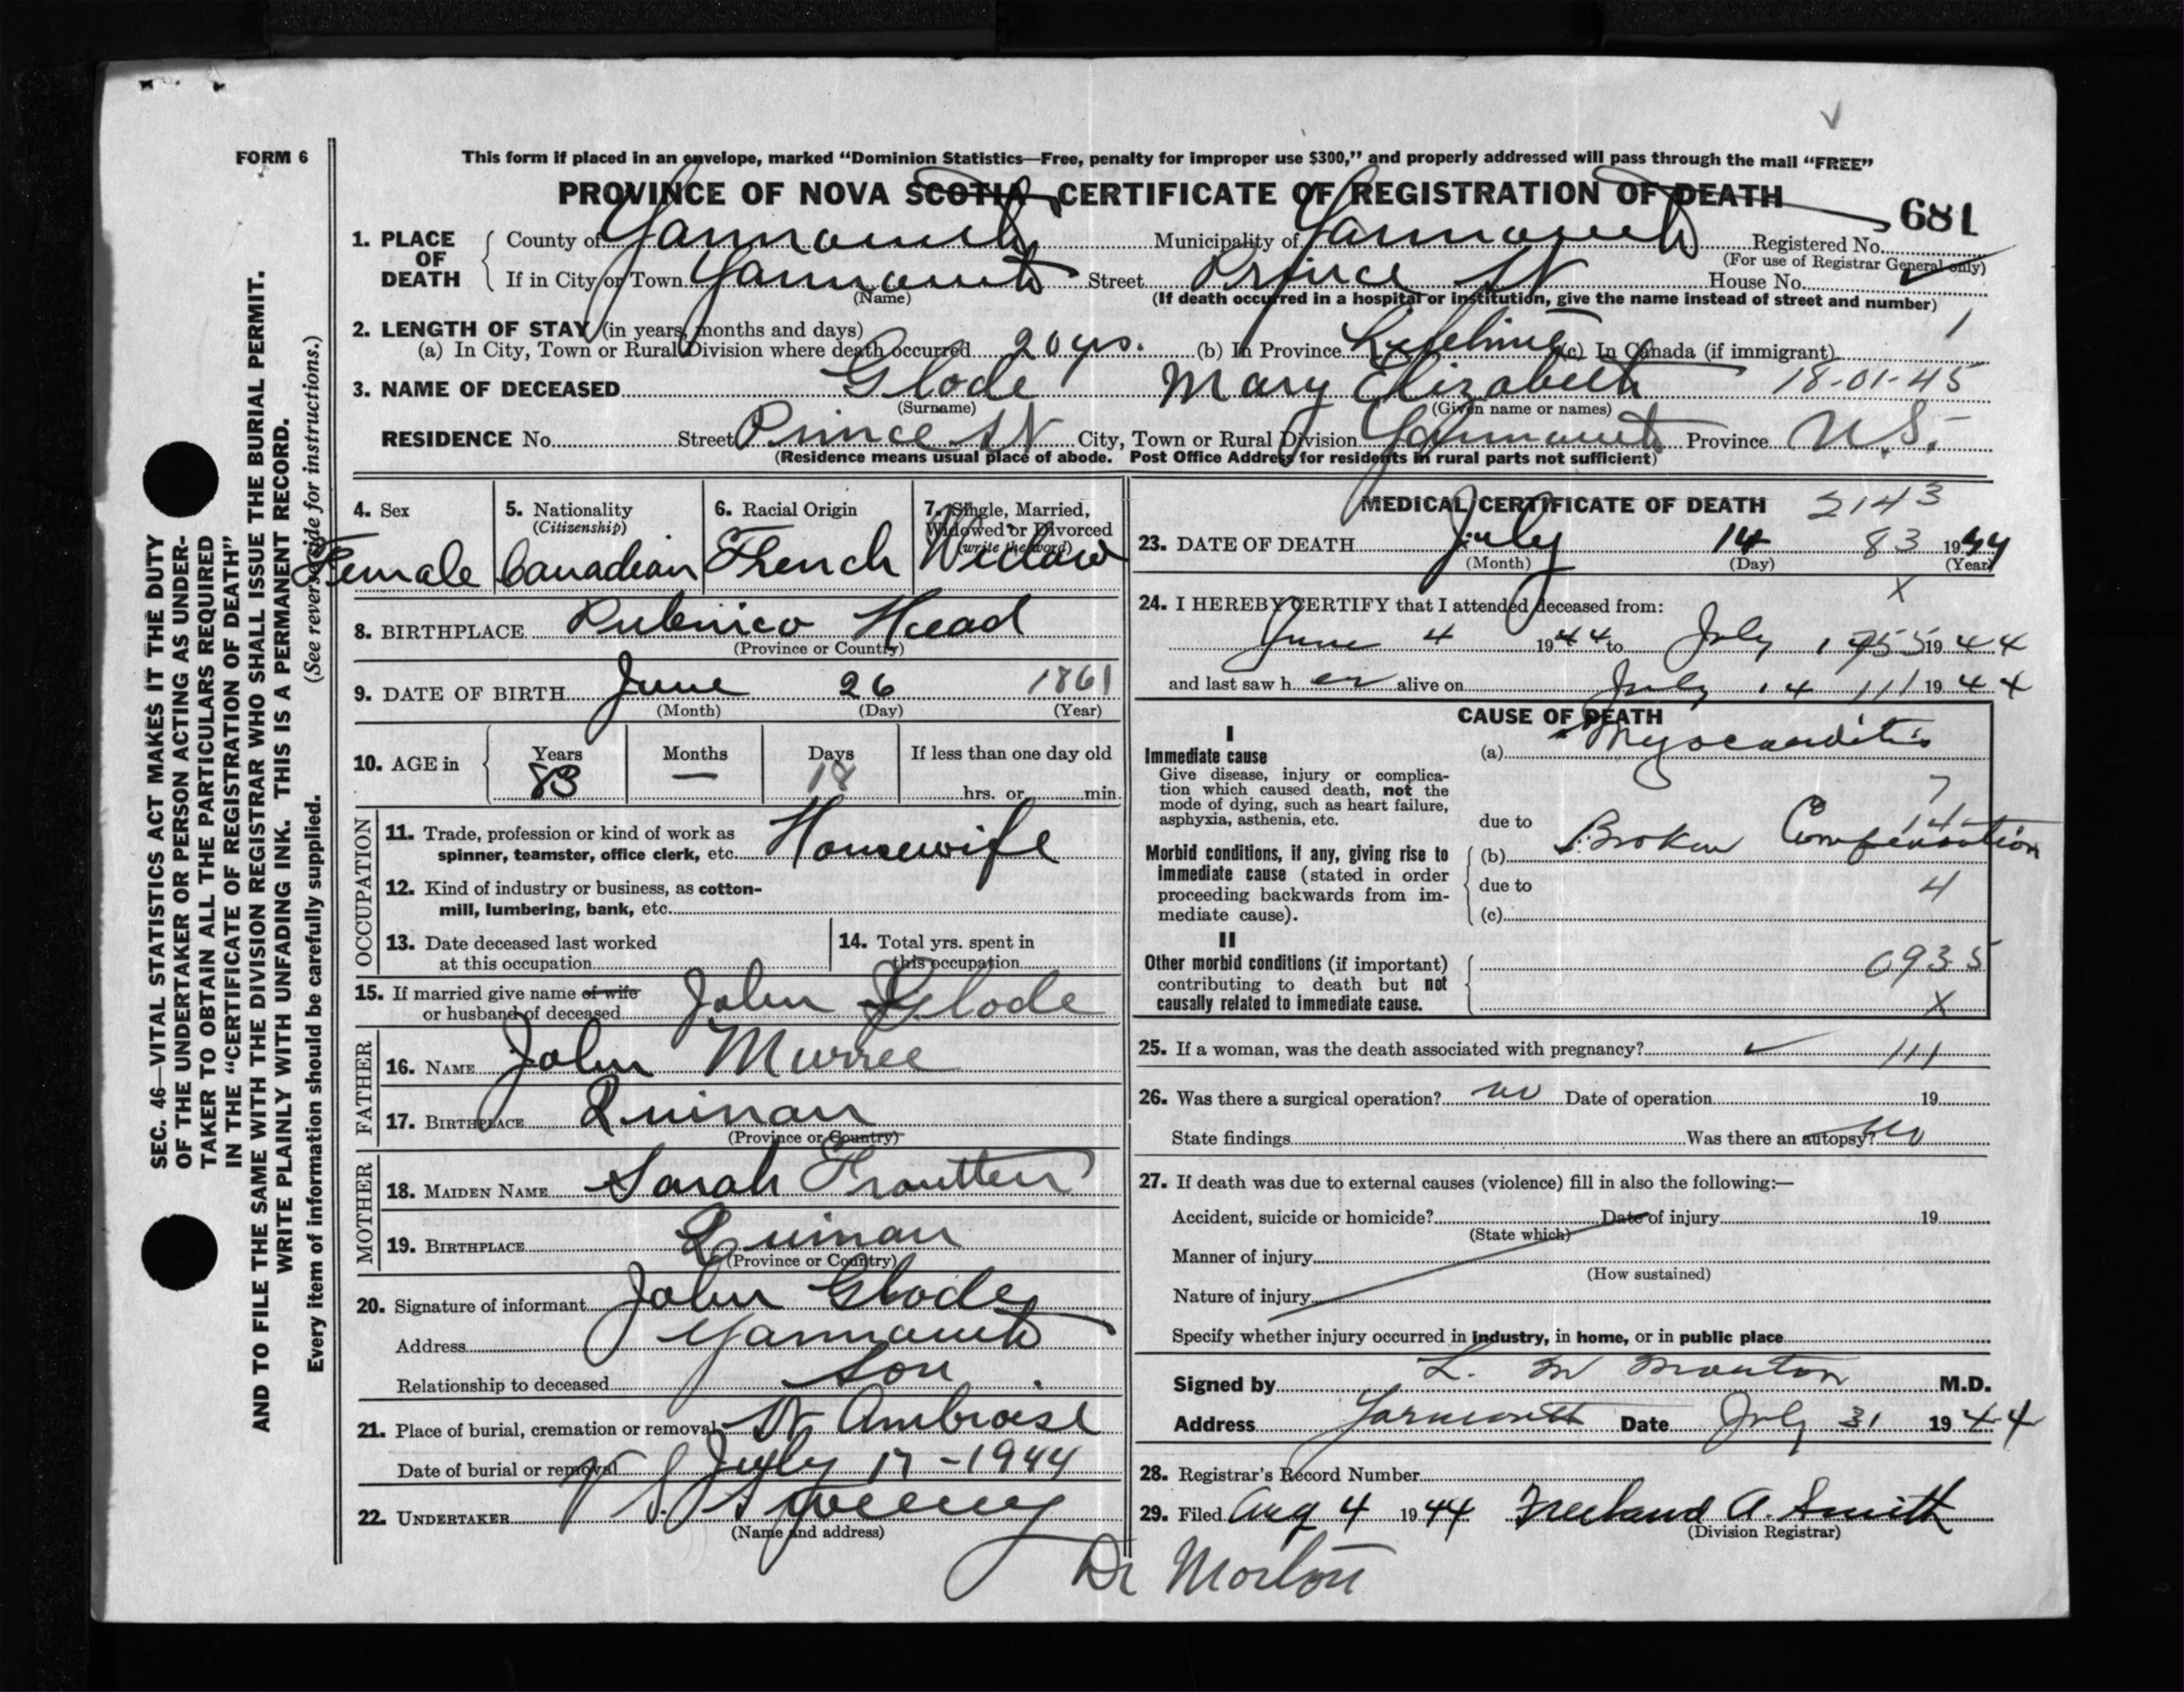 FORM 6
This form if placed in an envelope, marked “Dominion Statistics—Free, penalty for improper use $300,” and properly addressed will pass through the mail “FREE”
PROVINCE OF NOVA SCOTIA CERTIFICATE OF REGISTRATION OF DEATH
681
1. PLACE OF DEATH
County of Yarmouth Municipality of Yarmouth Registered No.
(For use of Registrar General only)
If in City or Town Yarmouth Street Prince St House No.
(Name) (If death occurred in a hospital or institution, give the name instead of street and number)
2. LENGTH OF STAY (in years, months and days)
(a) In City, Town or Rural Division where death occurred 20 yrs. (b) In Province Lifetime (c) In Canada (if immigrant) 1
3. NAME OF DECEASED Glode Mary Elizabeth 18-01-45
(Surname) (Given name or names)
RESIDENCE No. Street Prince St City, Town or Rural Division Yarmouth Province N.S.
(Residence means usual place of abode. Post Office Address for residents in rural parts not sufficient)
4. Sex
Female
5. Nationality
(Citizenship)
Canadian
6. Racial Origin
French
7. Single, Married,
Widowed or Divorced
(write the word)
Widow
8. BIRTHPLACE Pubnico Head
(Province or Country)
9. DATE OF BIRTH June 26 1861
(Month) (Day) (Year)
10. AGE in
Years Months Days If less than one day old
83 — 18 hrs. or min.
OCCUPATION
11. Trade, profession or kind of work as
spinner, teamster, office clerk, etc. Housewife
12. Kind of industry or business, as cotton-
mill, lumbering, bank, etc.
13. Date deceased last worked
at this occupation
14. Total yrs. spent in
this occupation
15. If married give name of wife
or husband of deceased John Glode
FATHER
16. NAME John Murree
17. BIRTHPLACE Quinan
(Province or Country)
MOTHER
18. MAIDEN NAME Sarah
19. BIRTHPLACE Quinan
(Province or Country)
20. Signature of informant John Glode
Address Yarmouth
Relationship to deceased Son.
21. Place of burial, cremation or removal St Ambroise
Date of burial or removal July 17-1944
22. UNDERTAKER V S Sweeney
(Name and address)
MEDICAL CERTIFICATE OF DEATH 2143
23. DATE OF DEATH July 14 83 1944
(Month) (Day) (Year)
X
24. I HEREBY CERTIFY that I attended deceased from:
June 4 1944 to July 1 1944
and last saw her alive on July 14 111 1944
CAUSE OF DEATH
I
Immediate cause
Give disease, injury or complica-
tion which caused death, not the
mode of dying, such as heart failure,
asphyxia, asthenia, etc.
(a) Myocarditis
7
14
due to
Morbid conditions, if any, giving rise to
immediate cause (stated in order
proceeding backwards from im-
mediate cause).
(b) Broken Compensation
due to 4
(c)
II
Other morbid conditions (if important)
contributing to death but not
causally related to immediate cause.
0935
X
25. If a woman, was the death associated with pregnancy? 111
26. Was there a surgical operation? no Date of operation 19
State findings Was there an autopsy? No
27. If death was due to external causes (violence) fill in also the following:—
Accident, suicide or homicide? Date of injury 19
(State which)
Manner of injury
(How sustained)
Nature of injury
Specify whether injury occurred in industry, in home, or in public place
Signed by L. M Morton M.D.
Address Yarmouth Date July 31 1944
28. Registrar's Record Number
29. Filed Aug 4 1944 Freeland A. Smith
(Division Registrar)
Dr Morton
SEC. 46—VITAL STATISTICS ACT MAKES IT THE DUTY
OF THE UNDERTAKER OR PERSON ACTING AS UNDER-
TAKER TO OBTAIN ALL THE PARTICULARS REQUIRED
IN THE “CERTIFICATE OF REGISTRATION OF DEATH”
AND TO FILE THE SAME WITH THE DIVISION REGISTRAR WHO SHALL ISSUE THE BURIAL PERMIT.
WRITE PLAINLY WITH UNFADING INK. THIS IS A PERMANENT RECORD.
Every item of information should be carefully supplied. (See reverse side for instructions.)